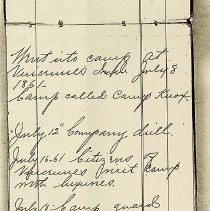 Went into camp at
Vincennes Ind. July 8
1861-
Camp called Camp Knox.
"July 12" Company drill.
July 16-61 Citizens of
Vincennes visit camp
with
July 18 Camp guard